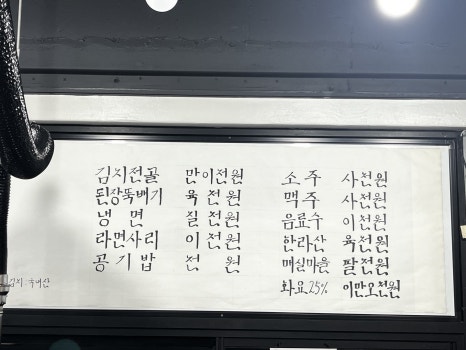 김치전골 만이천원
된장뚝배기 육천원
냉면 칠천원
라면사리 이천원
공기밥 천원
소주 사천원
맥주 사천원
음료수 이천원
한라산 육천원
매실마을 팔천원
화요25% 이만오천원
김치:국내산